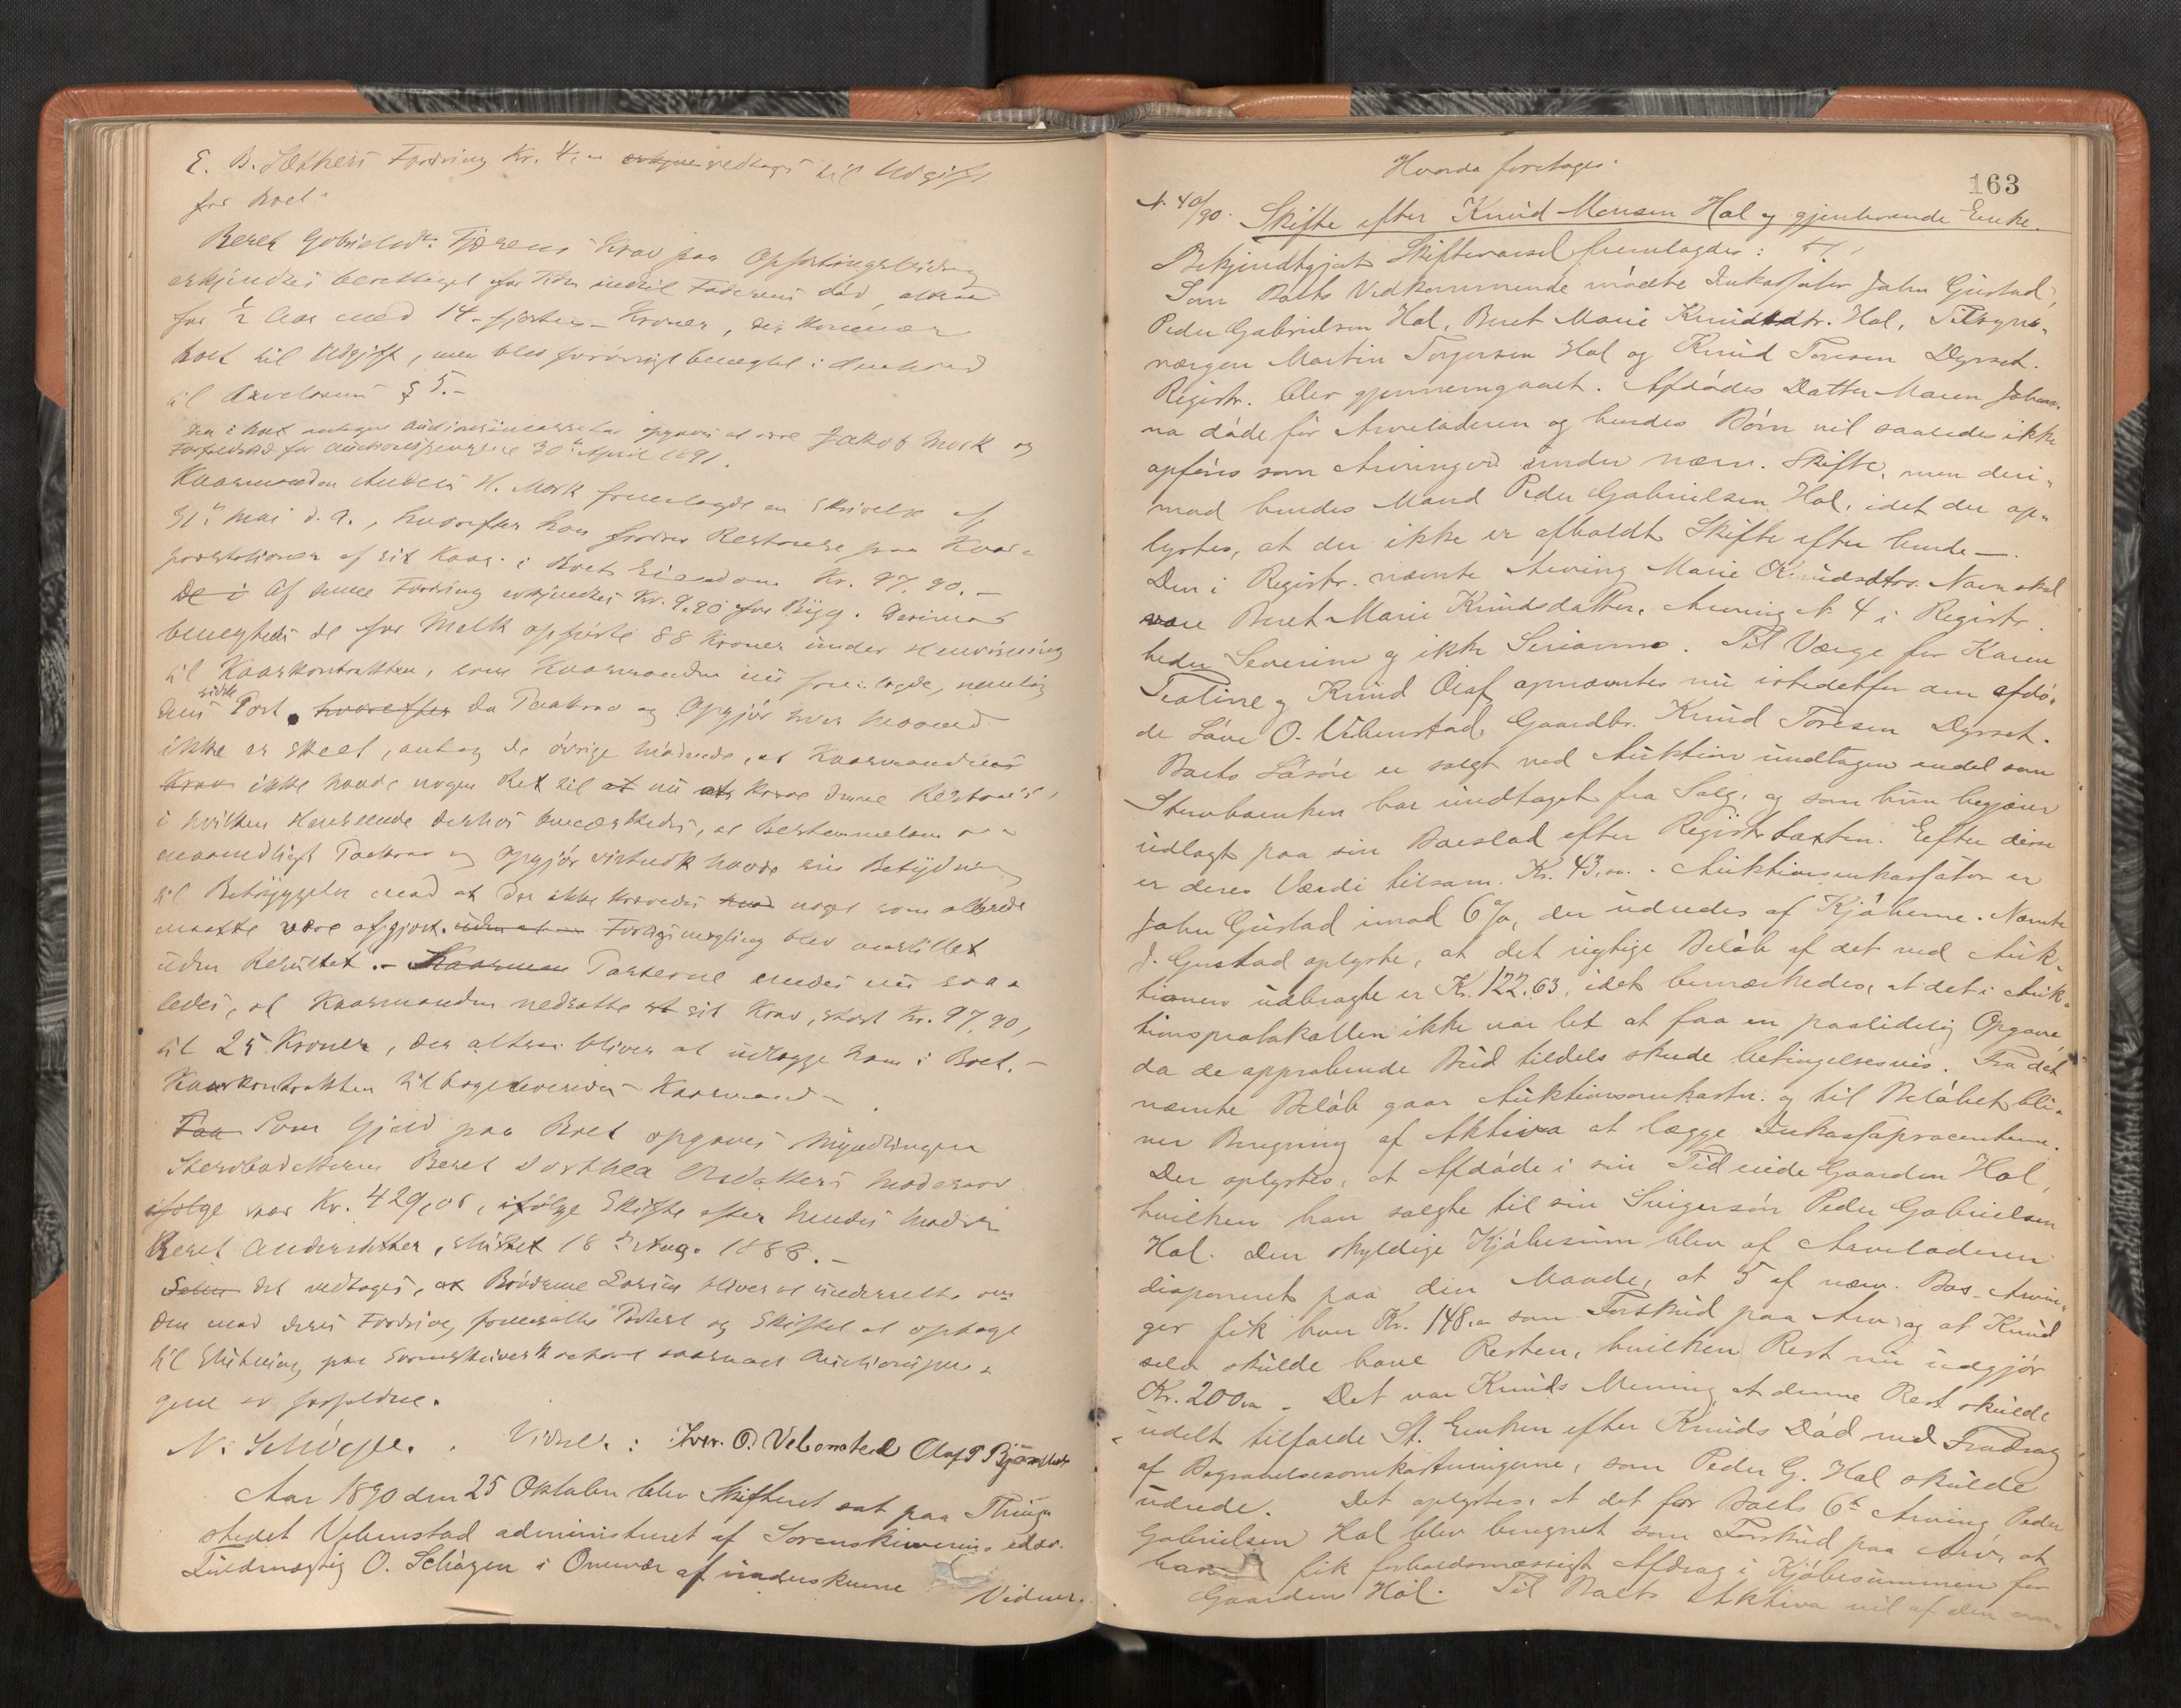 E. B. Sæthers Fordring Kr. 4,- erkjen vedtages til Udgift
for Boet.
Beret Gabrielsdtr. Fjærens Krav paa Opfostringsbidrag
erkjendtes berettiget for Tiden indtil Faderens død, altsaa
for 1/2 Aar med 14 - fjorten - Kroner, der kommer
Boet til Udgift, men blev forøvrigt benægtet i Henhold
til Arveloven § 5.-
Den i Boet antagne Auctionsincassator opgaves at være Jakob Mork og
Forfaldstid for Auctionspengene 30te April 1891.
Kaarmanden Anders H. Mork fremlagde en Skrivelse af
31te Mai d. A., hvorefter han fordrer Restance paa Kaar-
præstationer af sit Kaar i Boets Eiendom Kr. 97,90.-
De i Af denne Fordring erkjendtes Kr. 9.90 for Byg. Derimod
benegtedes de for Melk opførte 88 Kroner under Henvisning
til Kaarkontrakten, som Kaarmanden nu fremlagde, nemlig
dens sidste Post. hvorefter Da Paakrav og Opgjør hver Maaned
ikke er skeet, antog de øvrige Mødende, at Kaarmandens
Krav ikke havde nogen Ret til at nu at kræve denne Restance,
i hvilken Henseende derhos bemærkedes, at Bestemmelsen om
maanedligt Paakrav og Opgjør virkelig havde sin Betydning
til Betryggelse mod at der ikke krævedes hvad noget som allerede
maatte være afgjort. uden at Forligsmegling blev anstillet
uden Resultat. - Kaarman Parterne enedes nu saa-
ledes, at Kaarmanden nedsatte at sit Krav, stort Kr. 97,90,
til 25 Kroner, der altsaa bliver at udlægge ham i Boet.-
Kaarkontrakten tilbageleveredes Kaarmand-
Paa Som Gjæld paa Boet opgaves Myndlingen
Beret Dorthea Modersarv
ifølge stor Kr. 429,06, ifølge Skifte efter hendes Moder
Beret Andersdatter, sluttet 18de Aug. 1888.-
det vedtoges, at Brødrene bliver at underrette om
den mod deres Fordring fremsatte Protest og Skiftet at optage
til Slutning paa Sorenskriverkontoret saasnart Auctionspen-
gene er forfaldne.
N. Schøgen. Vidner: Iver. O. Vebenstad Olaf P Bjørn
Aar 1890 den 25 Oktober blev Skifteret sat paa Thing-
stedet Vebenstad administreret af Sorenskriverens edsv.
Fuldmægtig O. Schøgen i Overvær af underskrevne
Vidner.
Hvorda foretoges:
163
N. 40/90. Skifte efter Knud Monsen Hol og gjenlevende Enke.
Bekjendtgjort Skiftevarsel fremlagdes:
Som Boets Vedkommende mødte Inkassator John Gustad,
Peder Gabrielsen Hol, Beret Marie Knudsdtr. Hol, Tilsyns-
værgen Martin Torgersen Hol og Knud Toresen Dyrset.
Registr. blev gjennemgaaet. Afdødes Datter Maren Johan-
na døde før Arveladeren og hendes Børn vil saaledes ikke
opføres som Arvinger under nærv. Skifte, men deri-
mod hendes Mand Peder Gabrielsen Hol, idet der op-
lystes, at der ikke er afholdt Skifte efter hende -.
Den i Registr. nævnte Arving Marie Knudsdtrs. Navn skal
være Beret Marie Knudsdatter. Arving N. 4 i Registr.
heder Severine og ikke Serianna. Til Værge for Karen
og Knud Olaf opnævntes nu istedetfor den afdø-
de O. Vebenstad, Gaardbr. Knud Toresen Dyrset.
Boets Løsøre er solgt ved Auktion undtagen endel som
Stervboenken har undtaget fra Salg, og som hun begjærer
udlagt paa sin Boeslod efter Registr.taxten. Efter denne
er deres Værdi tilsam. Kr. 43,00. Auktionsinkassator er
John Gustad imod 6%, der udredes af Kjøberne. Nævnte
J. Gustad oplyste, at det rigtige Beløb af det ved Auk-
tionen udbragte er Kr. 122.63, idet bemærkedes, at det i Auk-
tionsprotokollen ikke var let at faa en paalidelig Opgave,
da de approberede Bud tildels skede betingelsesvis. Fra det
nævnte Beløb gaar Auktionsomkostn. og til Beløbet bli-
ver Beregning af Aktiva at lægge Inkassaprocenterne.
Der oplystes, at Afdøde i sin Tid eiede Gaarden Hol,
hvilken han solgte til sin Svigersøn Peder Gabrielsen
Hol. Den skyldige Kjøbesum blev af Arveladeren
disponeret paa den Maade, at 5 af nærv. Bos Arvin-
ger fik hver Kr. 148.00 som Forskud paa Arv og at Knud
selv skulde have Resten, hvilken Rest nu udgjør
Kr. 200,00. Det var Knuds Mening at denne Rest skulde
udelt tilfalde St. Enken efter Knuds Død med Fradrag
af Begravelsesomkostningerne, som Peder G. Hol skulde
udrede. Det oplystes, at det for Boets 6te Arving Peder
Gabrielsen Hol blev beregnet som Forskud paa Arv, at
han fik forholdsmæssigt Afdrag i Kjøbesummen for
Gaarden Hol. Til Boets Aktiva vil af den om-